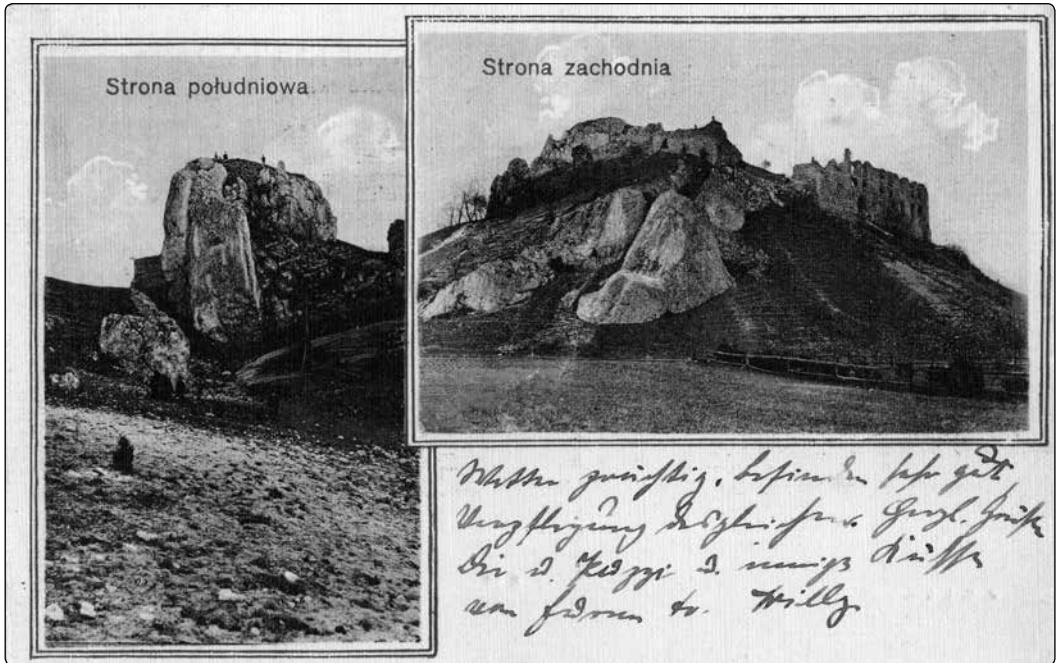 Strona południowa.
Strona zachodnia
Wetter prächtig, befinden sehr gut
Verpflegung desgleichen. Herzl. Grüße
Dir u. u. innige Küsse
von Willy.